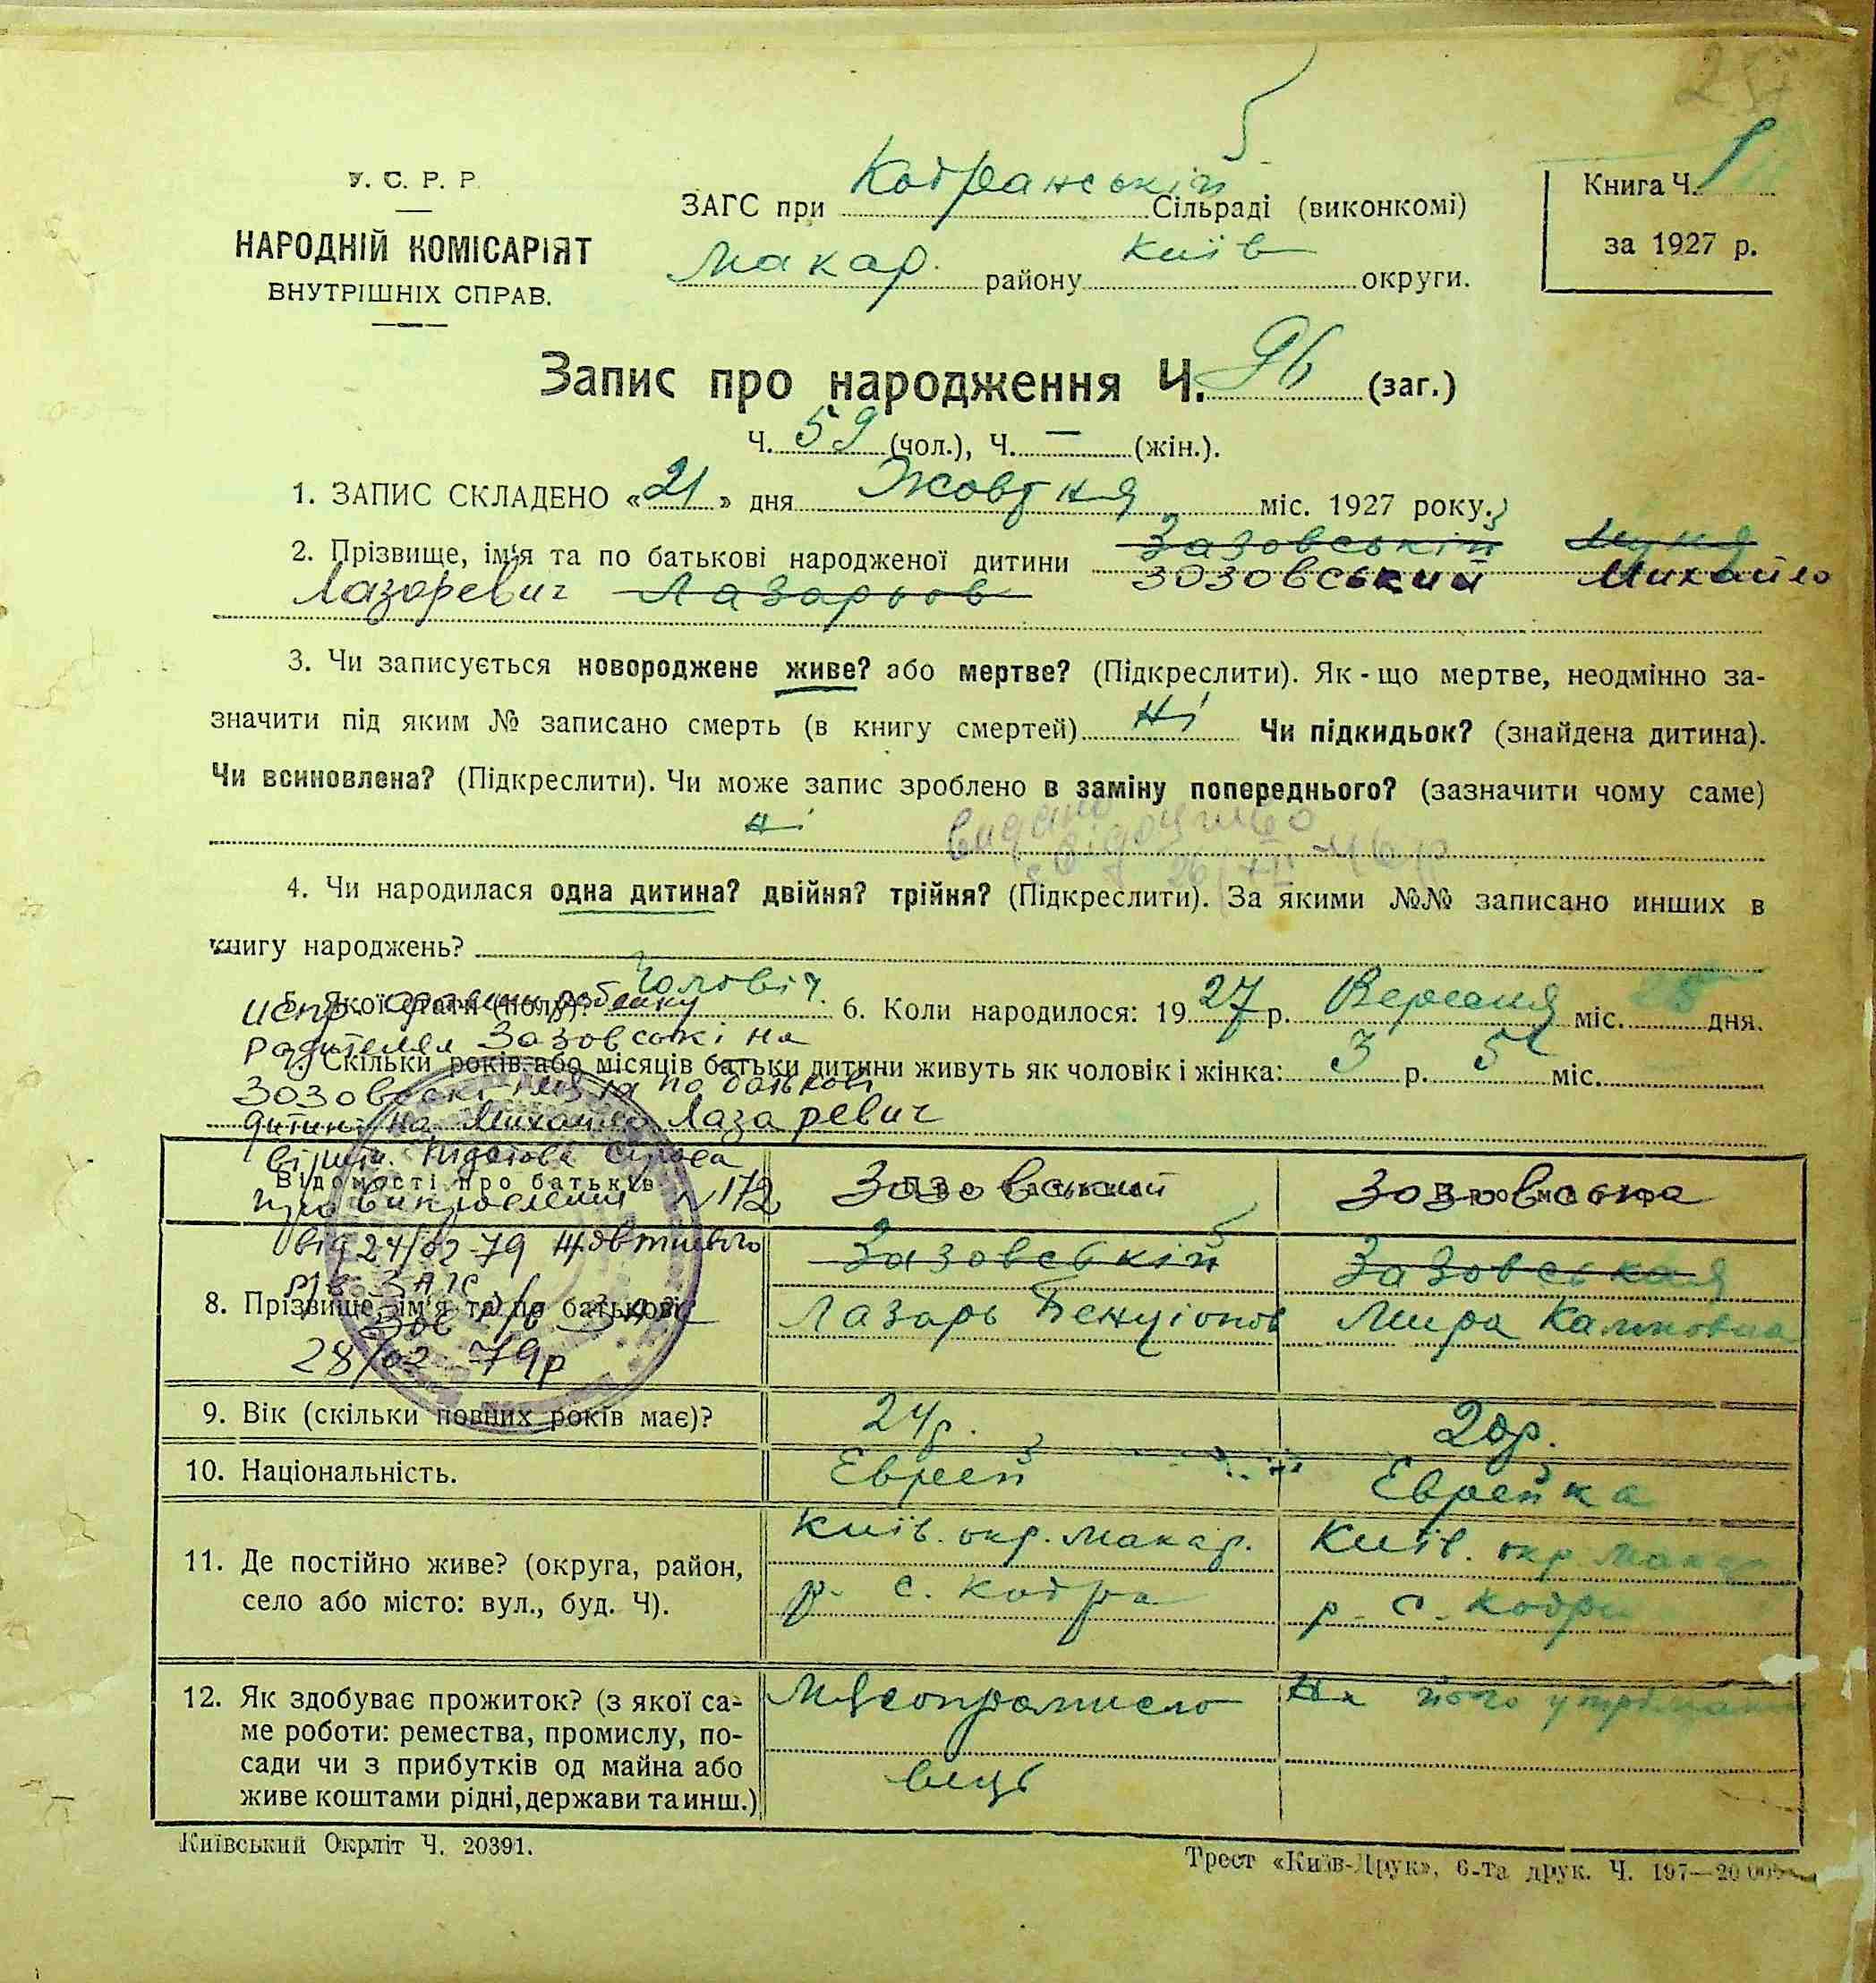 У. С. Р. Р.
НАРОДНІЙ КОМІСАРІЯТ
ВНУТРІШНІХ СПРАВ.
ЗАГС при Кодранській Сільраді (виконкомі)
Макар. району Київ округи.
Книга Ч.
за 1927 р.
Запис про народження Ч. 96 (заг.)
Ч. 59 (чол.), Ч. — (жін.).
1. ЗАПИС СКЛАДЕНО «21» дня Жовтня міс. 1927 року.
2. Прізвище, ім'я та по батькові народженої дитини Зазовській Муня
Лазоревич Лазарьов Зозовський Михайло
3. Чи записується новороджене живе? або мертве? (Підкреслити). Як-що мертве, неодмінно за-
значити під яким № записано смерть (в книгу смертей) ні Чи підкидьок? (знайдена дитина).
Чи всиновлена? (Підкреслити). Чи може запис зроблено в заміну попереднього? (зазначити чому саме)
ні
видано свідоцтво
4. Чи народилася одна дитина? двійня? трійня? (Підкреслити). За якими №№ записано инших в
книгу народжень?
5. Якої статі (полу)? Чоловіч. 6. Коли народилося: 1927 р. Вересня міс. 28 дня.
7. Скільки років або місяців батьки дитини живуть як чоловік і жінка: 3 р. 5 міс.
Зазовські на
Зозовські ім'я та по батькові
дитині на Михайло Лазаревич
№ 172
від 24/02-79 Жовтневого
ЗАГС
28/02-79р
Відомості про батьків Зозовський Зозовська
8. Прізвище, ім'я та по батькові Зазовській Зазовская
Лазарь Бенціонов Мира Калмовна
9. Вік (скільки повних років має)? 24р. 20р.
10. Національність. Еврей Еврейка
11. Де постійно живе? (округа, район, Київ. окр. Макар. Київ. окр. Макар
село або місто: вул., буд. Ч). р. с. Кодра р. с. Кодра
12. Як здобуває прожиток? (з якої са- Мясопромисло На його утриманні
ме роботи: ремества, промислу, по-
сади чи з прибутків од майна або вець
живе коштами рідні, держави та инш.)
Київський Окрліт Ч. 20391.
Трест «Київ-Друк», 6-та друк. Ч. 197—20 000